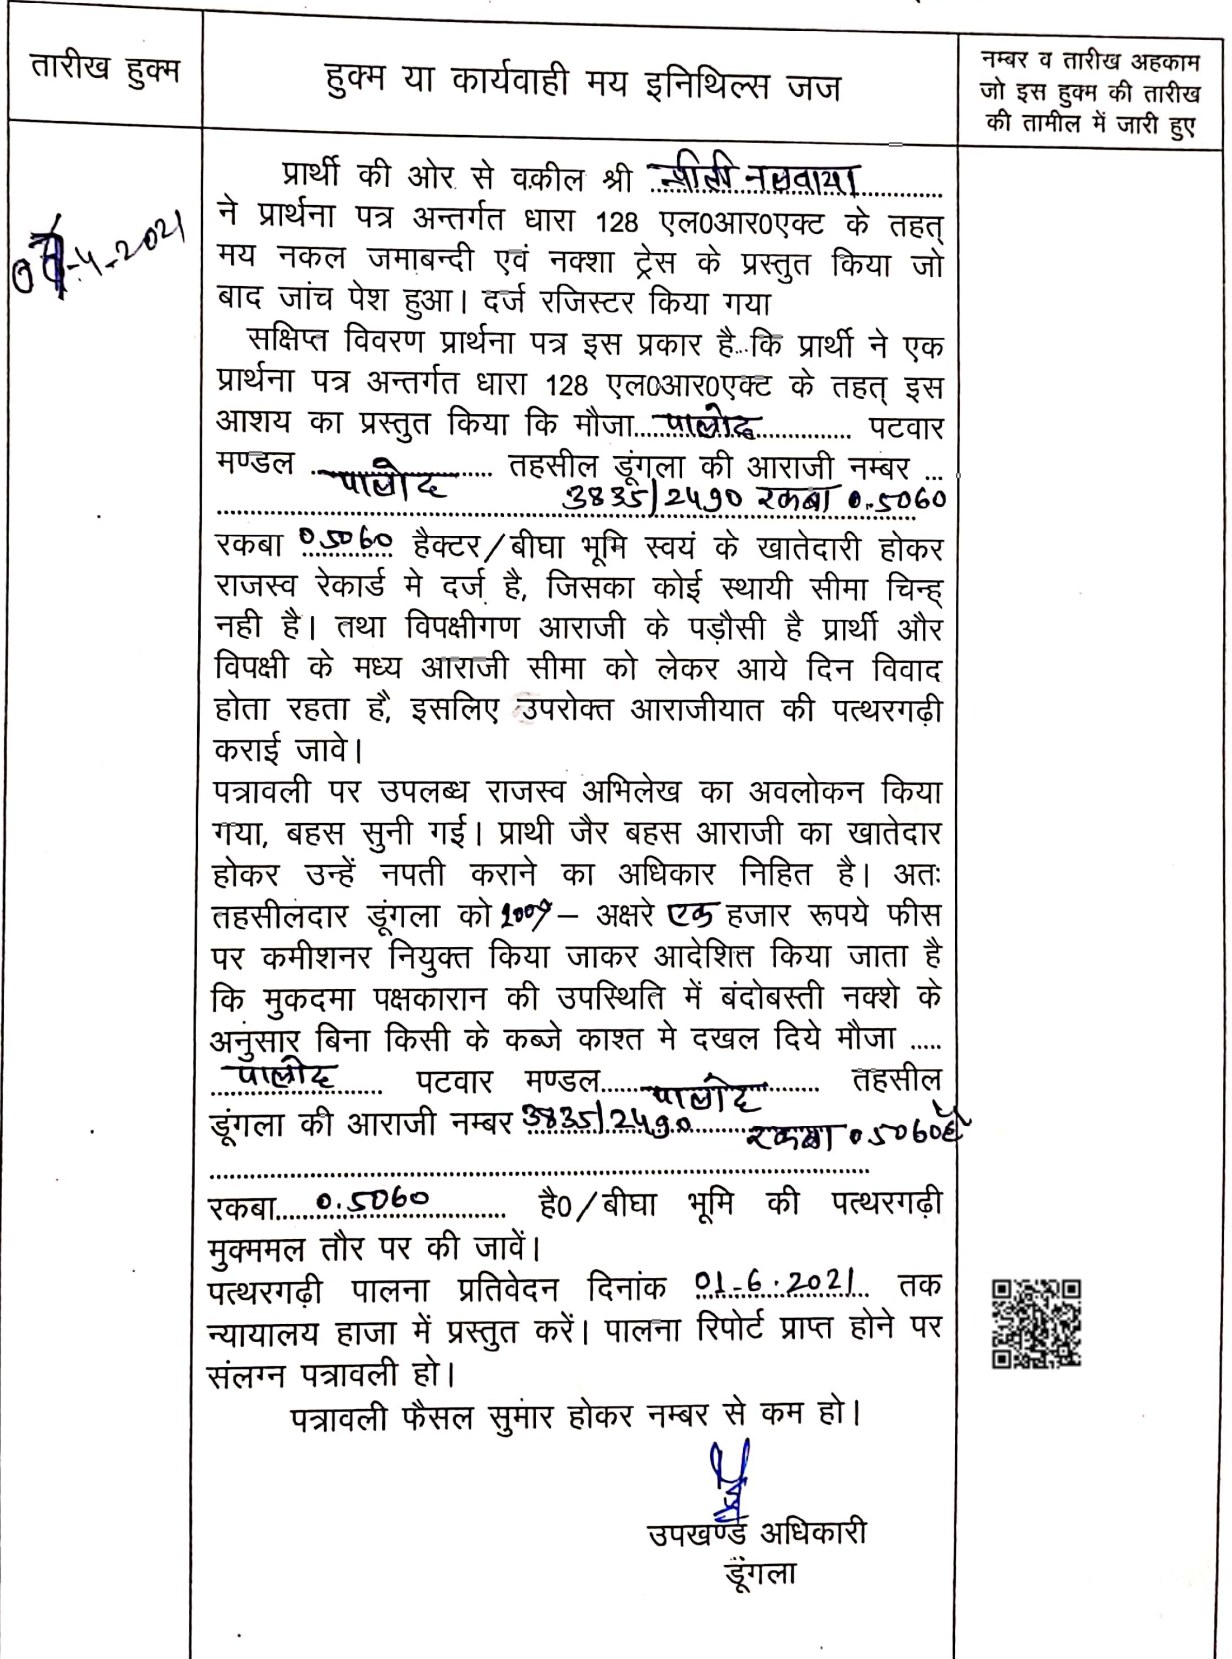 तारीख हुक्म
हुक्म या कार्यवाही मय इनिथिल्स जज
नम्बर व तारीख अहकाम
जो इस हुक्म की तारीख
की तामील में जारी हुए
-4-2021
प्रार्थी की ओर से वकील श्री नलवाया
ने प्रार्थना पत्र अन्तर्गत धारा 128 एल0आर0एक्ट के तहत्
मय नकल जमाबन्दी एवं नक्शा ट्रेस के प्रस्तुत किया जो
बाद जांच पेश हुआ। दर्ज रजिस्टर किया गया
सक्षिप्त विवरण प्रार्थना पत्र इस प्रकार है..कि प्रार्थी ने एक
प्रार्थना पत्र अन्तर्गत धारा 128 एल0आर0एक्ट के तहत् इस
आशय का प्रस्तुत किया कि मौजा...पालोद............... पटवार
मण्डल ...पालोद......... तहसील डूंगला की आराजी नम्बर ...
3835/2490 रकबा 0.5060
रकबा 0.5060 हैक्टर/बीघा भूमि स्वयं के खातेदारी होकर
राजस्व रेकार्ड मे दर्ज है, जिसका कोई स्थायी सीमा चिन्ह्
नही है। तथा विपक्षीगण आराजी के पड़ौसी है प्रार्थी और
विपक्षी के मध्य आराजी सीमा को लेकर आये दिन विवाद
होता रहता है, इसलिए उपरोक्त आराजीयात की पत्थरगढ़ी
कराई जावे।
पत्रावली पर उपलब्ध राजस्व अभिलेख का अवलोकन किया
गया, बहस सुनी गई। प्राथी जैर बहस आराजी का खातेदार
होकर उन्हें नपती कराने का अधिकार निहित है। अतः
तहसीलदार डूंगला को 1000/- अक्षरे एक हजार रूपये फीस
पर कमीशनर नियुक्त किया जाकर आदेशित किया जाता है
कि मुकदमा पक्षकारान की उपस्थिति में बंदोबस्ती नक्शे के
अनुसार बिना किसी के कब्जे काश्त मे दखल दिये मौजा .....
पालोद......... पटवार मण्डल......पालोद......... तहसील
डूंगला की आराजी नम्बर 3835/2490 रकबा 0.5060 है
रकबा.....0.5060......... है0/बीघा भूमि की पत्थरगढ़ी
मुक्ममल तौर पर की जावें।
पत्थरगढ़ी पालना प्रतिवेदन दिनांक 01-6-2021 तक
न्यायालय हाजा में प्रस्तुत करें। पालना रिपोर्ट प्राप्त होने पर
संलग्न पत्रावली हो।
पत्रावली फैसल सुमार होकर नम्बर से कम हो।
उपखण्ड अधिकारी
डूंगला